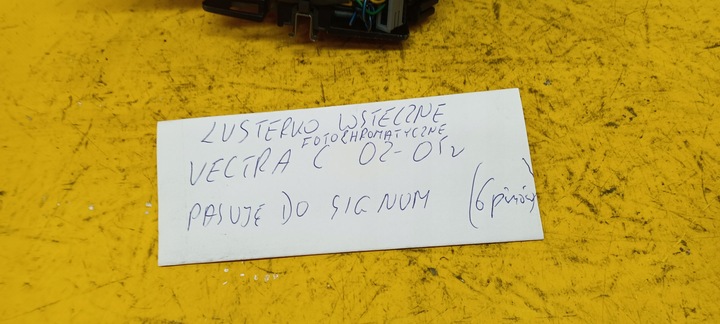 LUSTERKO WSTECZNE
FOTOCHROMATYCZNE
VECTRA C 02-05r
PASUJE DO SIGNUM (6 pinów)